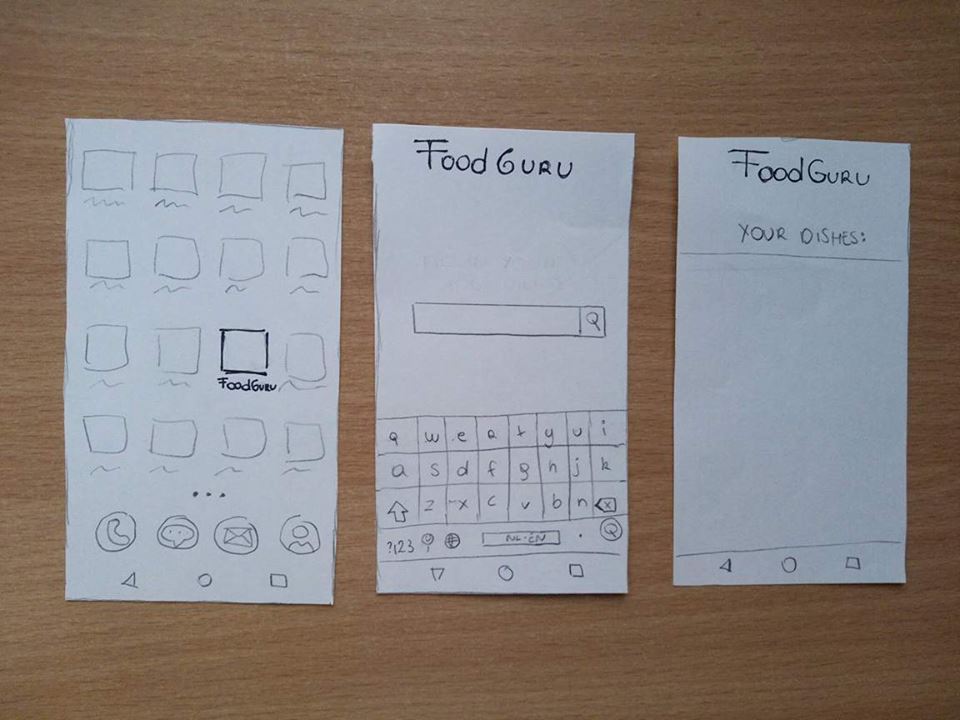 FoodGuru
FoodGuru
q w e r t y u i
a s d f g h j k
z x c v b n
?,123 NL·EN .
FoodGuru
YOUR DISHES: